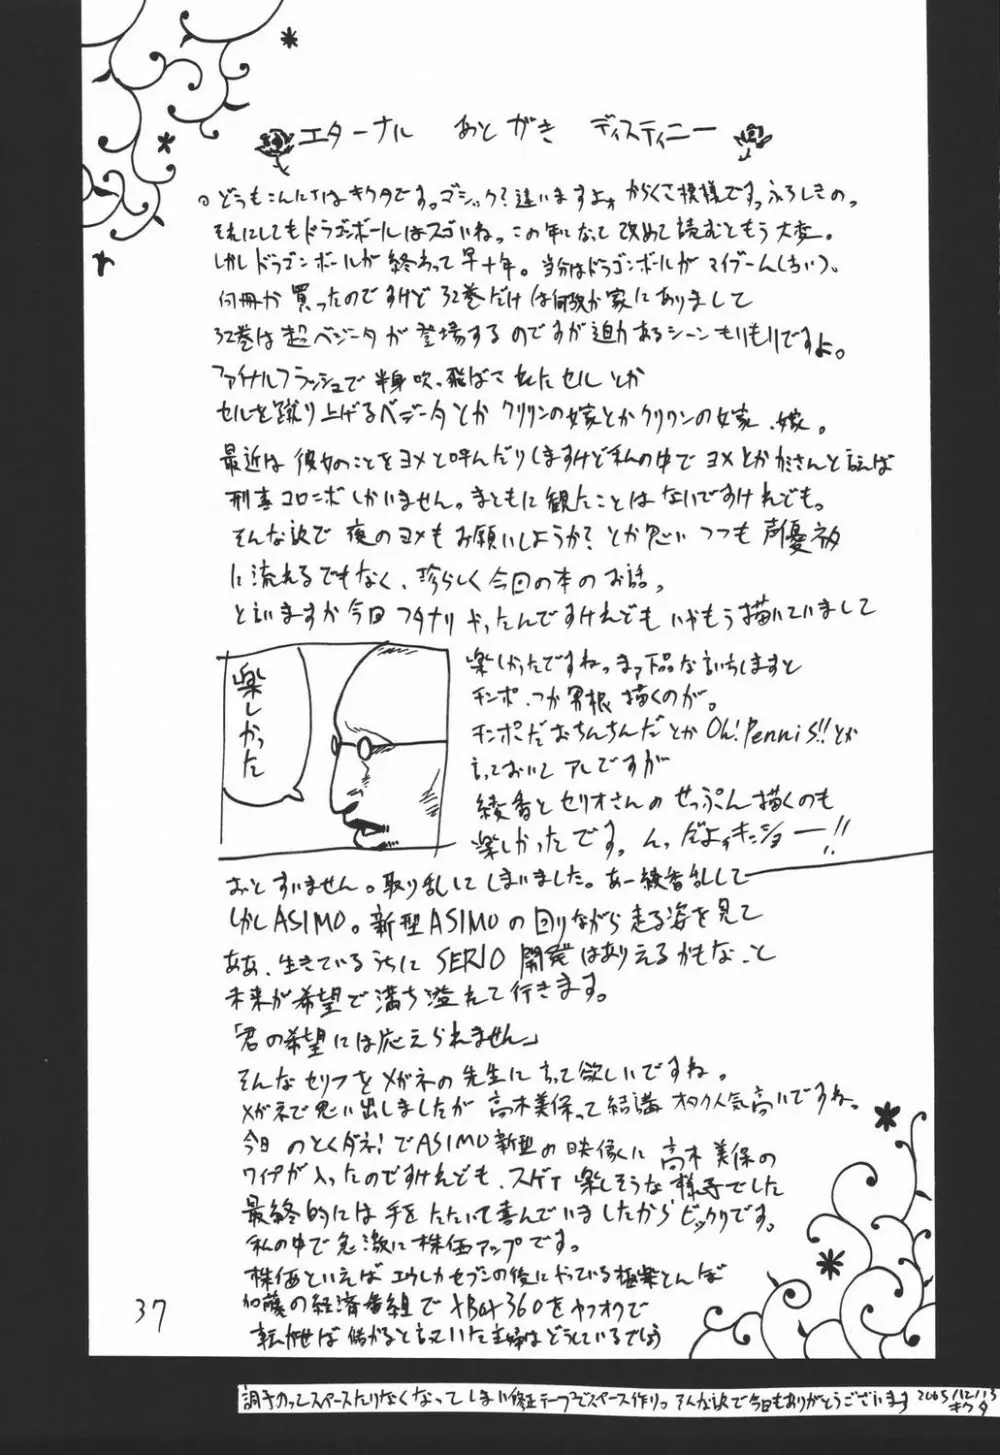 エターナル あとがき ディスティニー
。どうもこんにちはキクタです。ゴシック?違いますよォ からくさ模様です。ふろしきの。
それにしてもドラゴンボールはスゴいね。この年になって改めて読むともう大変。
しかしドラゴンボールが終わって早十年。当分はドラゴンボールがマイブーム(古い)。
何冊か買ったのですけど32巻だけは何故か家にありまして
32巻は超ベジータが登場するのですが迫力あるシーンもりもりですよ。
ファイナルフラッシュで半身吹っ飛ばされたセルとか
セルを蹴り上げるベジータとかクリリンの嫁とかクリリンの嫁、嫁。
最近は彼女のことをヨメと呼んだりしますけど私の中でヨメとかカミさんと言えば
刑事コロンボしかいません。まともに観たことはないですけれども。
そんな訳で夜のヨメもお願いしようか?とか思いつつも声優ネタ
に流れるでもなく、珍らしく今回の本のお話。
と言いますか今回フタナリやったんですけれどもいやもう描いていまして
楽しかった
楽しかったですねっまァ下品な言いちしますと
チンポ、つか男根描くのが。
チンポだおちんちんだとかOh!Pennis!!とか
言っておいてアレですが
綾香とセリオさんのせっぷん描くのも
楽しかったです。んっだよィキショー!!
おとすいません。取り乱してしまいました。あー綾香乱して
しかしASIMO。新型ASIMOの回りながら走る姿を見て
ああ、生きているうちにSERIO開発はありえるかもな、と
未来が希望で満ち溢れて行きます。
「君の希望には応えられません」
そんなセリフをメガネの先生に言って欲しいですね。
メガネで思い出しましたが高木美保って結講オタク人気高いですね。
今日のとくダネ!でASIMO新型の映像に高木美保の
ワイプが入ったのですけれども、スゲェ楽しそうな様子でした
最終的には手をたたいて喜んでいましたからビックリです。
私の中で急激に株価アップです。
株価といえばエウレカセブンの後にやっている極楽とんぼ
加藤の経済番組でXBOX360をヤフオクで
転がせば儲かると言っていた主婦はどうしているでしょう
37
調子のってスペースたりなくなってしまい修正テープでスペース作り。そんな訳で今日もありがとうございます 2005/12/13
キクタ